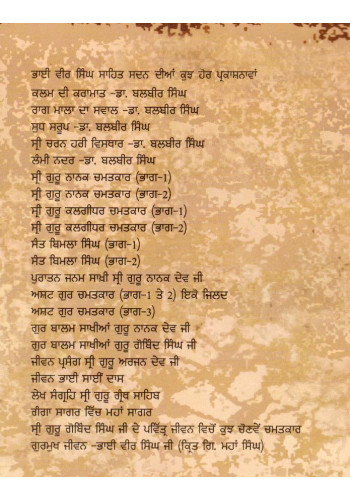 ਭਾਈ ਵੀਰ ਸਿੰਘ ਸਾਹਿਤ ਸਦਨ ਦੀਆਂ ਕੁਝ ਹੋਰ ਪ੍ਰਕਾਸ਼ਨਾਵਾਂ
ਕਲਮ ਦੀ ਕਰਾਮਾਤ -ਡਾ. ਬਲਬੀਰ ਸਿੰਘ
ਰਾਗ ਮਾਲਾ ਦਾ ਸਵਾਲ -ਡਾ. ਬਲਬੀਰ ਸਿੰਘ
ਸੁਧ ਸਰੂਪ -ਡਾ. ਬਲਬੀਰ ਸਿੰਘ
ਸ੍ਰੀ ਚਰਨ ਹਰੀ ਵਿਸਥਾਰ -ਡਾ. ਬਲਬੀਰ ਸਿੰਘ
ਲੰਮੀ ਨਦਰ -ਡਾ. ਬਲਬੀਰ ਸਿੰਘ
ਸ੍ਰੀ ਗੁਰੂ ਨਾਨਕ ਚਮਤਕਾਰ (ਭਾਗ-1)
ਸ੍ਰੀ ਗੁਰੂ ਨਾਨਕ ਚਮਤਕਾਰ (ਭਾਗ-2)
ਸ੍ਰੀ ਗੁਰੂ ਕਲਗੀਧਰ ਚਮਤਕਾਰ (ਭਾਗ-1)
ਸ੍ਰੀ ਗੁਰੂ ਕਲਗੀਧਰ ਚਮਤਕਾਰ (ਭਾਗ-2)
ਸੰਤ ਬਿਮਲਾ ਸਿੰਘ (ਭਾਗ-1)
ਸੰਤ ਬਿਮਲਾ ਸਿੰਘ (ਭਾਗ-2)
ਪੁਰਾਤਨ ਜਨਮ ਸਾਖੀ ਸ੍ਰੀ ਗੁਰੂ ਨਾਨਕ ਦੇਵ ਜੀ
ਅਸ਼ਟ ਗੁਰ ਚਮਤਕਾਰ (ਭਾਗ-1 ਤੇ 2) ਇਕੋ ਜਿਲਦ
ਅਸ਼ਟ ਗੁਰ ਚਮਤਕਾਰ (ਭਾਗ-3)
ਗੁਰ ਬਾਲਮ ਸਾਖੀਆਂ ਗੁਰੂ ਨਾਨਕ ਦੇਵ ਜੀ
ਗੁਰ ਬਾਲਮ ਸਾਖੀਆਂ ਗੁਰੂ ਗੋਬਿੰਦ ਸਿੰਘ ਜੀ
ਜੀਵਨ ਪ੍ਰਸੰਗ ਸ੍ਰੀ ਗੁਰੂ ਅਰਜਨ ਦੇਵ ਜੀ
ਜੀਵਨ ਭਾਈ ਸਾਈਂ ਦਾਸ
ਲੇਖ ਸੰਗ੍ਰਹਿ ਸ੍ਰੀ ਗੁਰੂ ਗ੍ਰੰਥ ਸਾਹਿਬ
ਗੰਗਾ ਸਾਗਰ ਵਿੱਚ ਮਹਾਂ ਸਾਗਰ
ਸ੍ਰੀ ਗੁਰੂ ਗੋਬਿੰਦ ਸਿੰਘ ਜੀ ਦੇ ਪਵਿੱਤ੍ਰ ਜੀਵਨ ਵਿਚੋਂ ਕੁਝ ਚੋਣਵੇਂ ਚਮਤਕਾਰ
ਗੁਰਮੁਖ ਜੀਵਨ -ਭਾਈ ਵੀਰ ਸਿੰਘ ਜੀ (ਕ੍ਰਿਤ ਗਿ. ਮਹਾਂ ਸਿੰਘ)